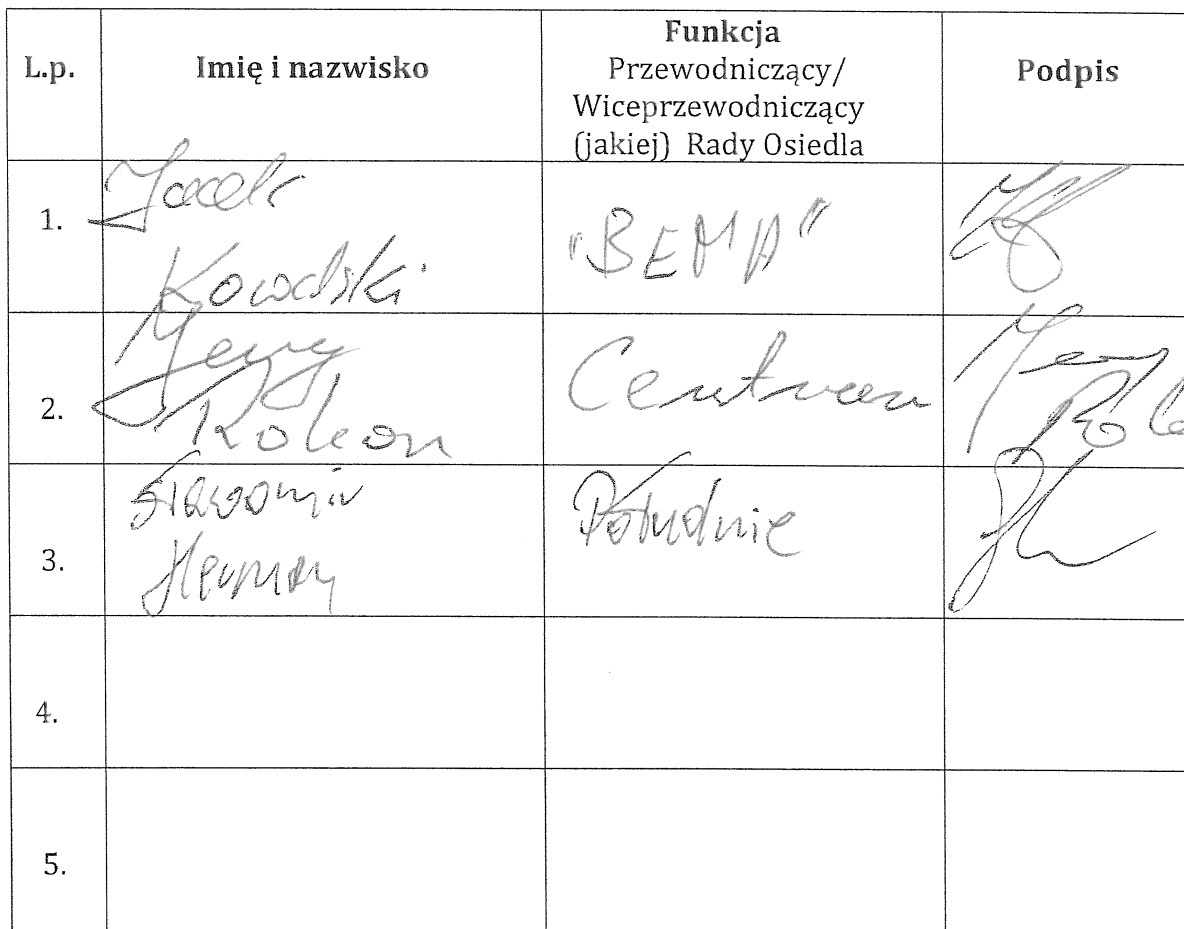 L.p.
Imię i nazwisko
Funkcja
Przewodniczący/
Wiceprzewodniczący
(jakiej) Rady Osiedla
Podpis
1.
Jacek
Kowalski
"BEMA"
2.
Jerzy
Centrum
Jerzy
3.
Sławomir
Południe
4.
5.